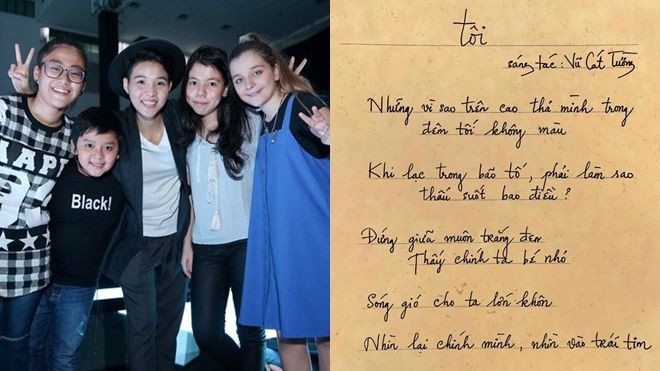 HAPPY
Black!
tôi
sáng tác: Vũ Cát Tường
Những vì sao trên cao thả mình trong
đêm tối không màu
Khi lạc trong bão tố, phải làm sao
thấu suốt bao điều?
Đứng giữa muôn trắng đen
Thấy chính ta bé nhỏ
Sóng gió cho ta lớn khôn
Nhìn lại chính mình, nhìn vào trái tim